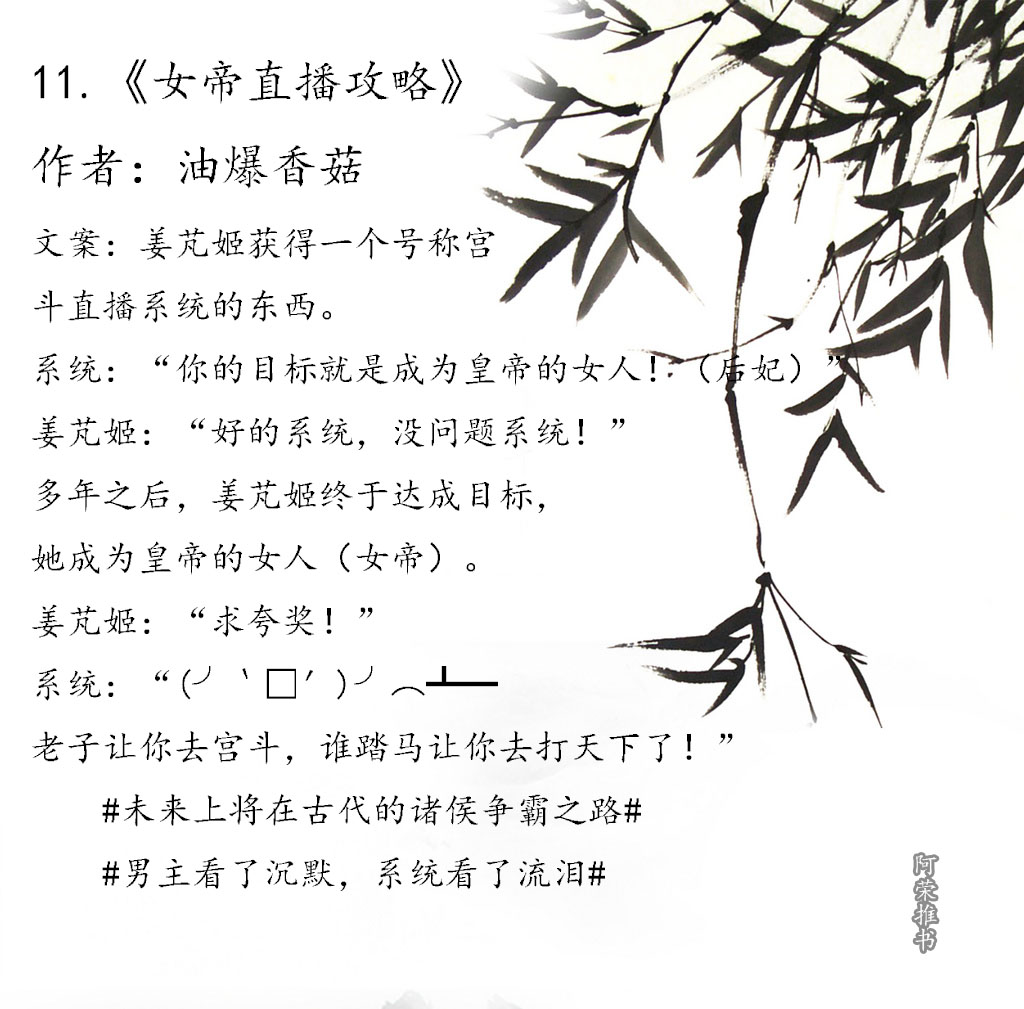 11.《女帝直播攻略》
作者：油爆香菇
文案：姜芃姬获得一个号称宫
斗直播系统的东西。
系统：“你的目标就是成为皇帝的女人！（后妃）”
姜芃姬：“好的系统，没问题系统！”
多年之后，姜芃姬终于达成目标，
她成为皇帝的女人（女帝）。
姜芃姬：“求夸奖！”
系统：“(╯‵□′)╯︵┻━
老子让你去宫斗，谁踏马让你去打天下了！”
#未来上将在古代的诸侯争霸之路#
#男主看了沉默，系统看了流泪#
阿荣推书